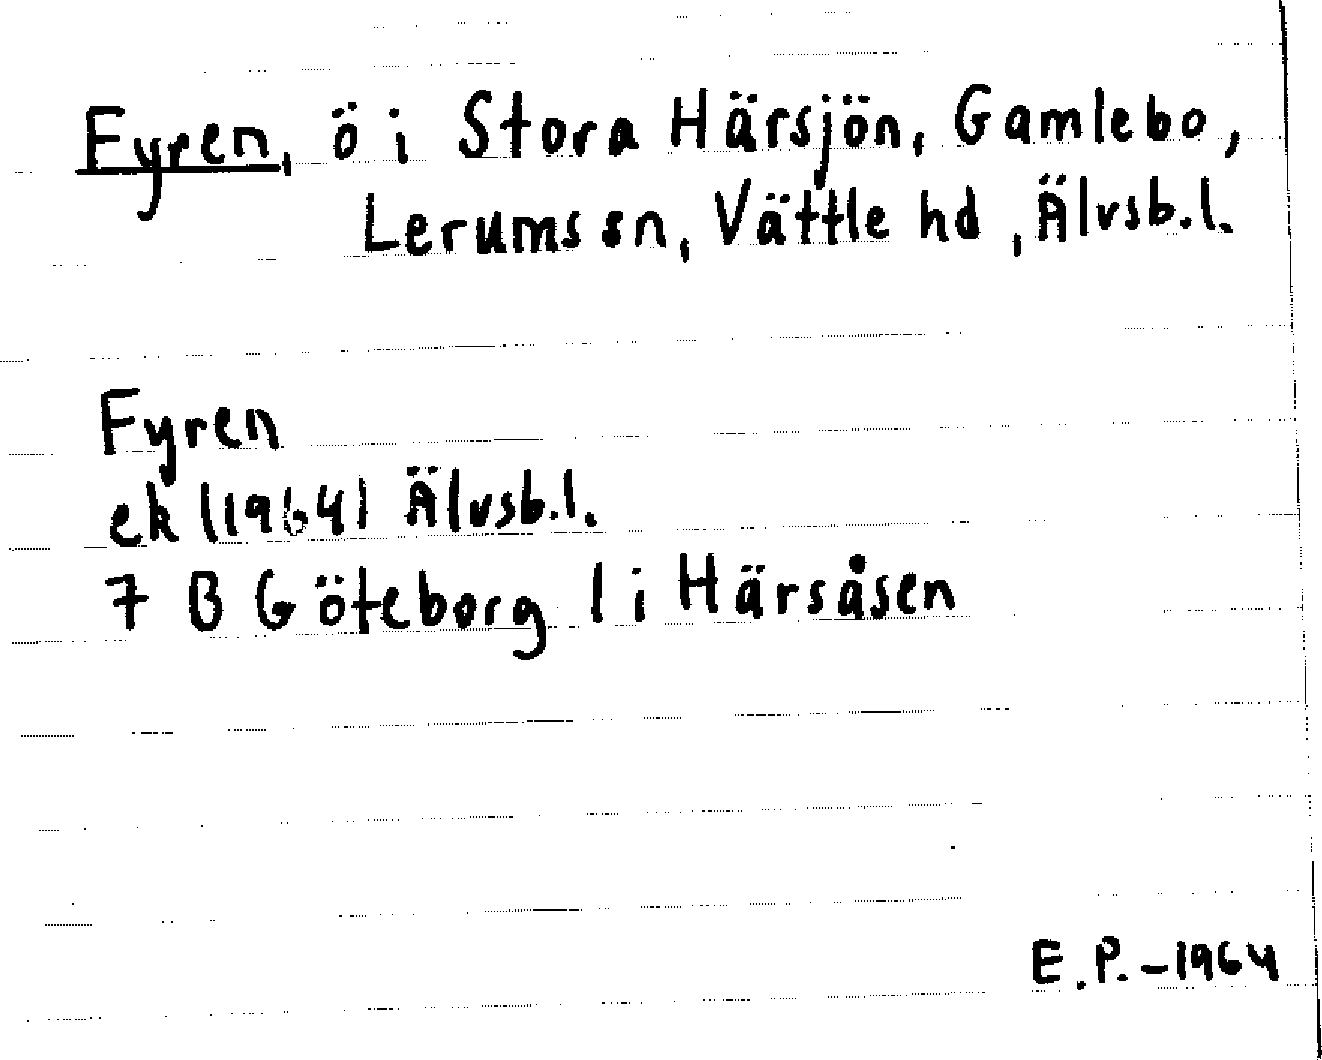 Fyren, ö i Stora Härsjön, Gamlebo,
Lerums sn, Vättle hd, Älvsb.l.
Fyren
ek (1964) Älvsb.l.
7 B Göteborg 1 i Härsåsen
E.P.-1964